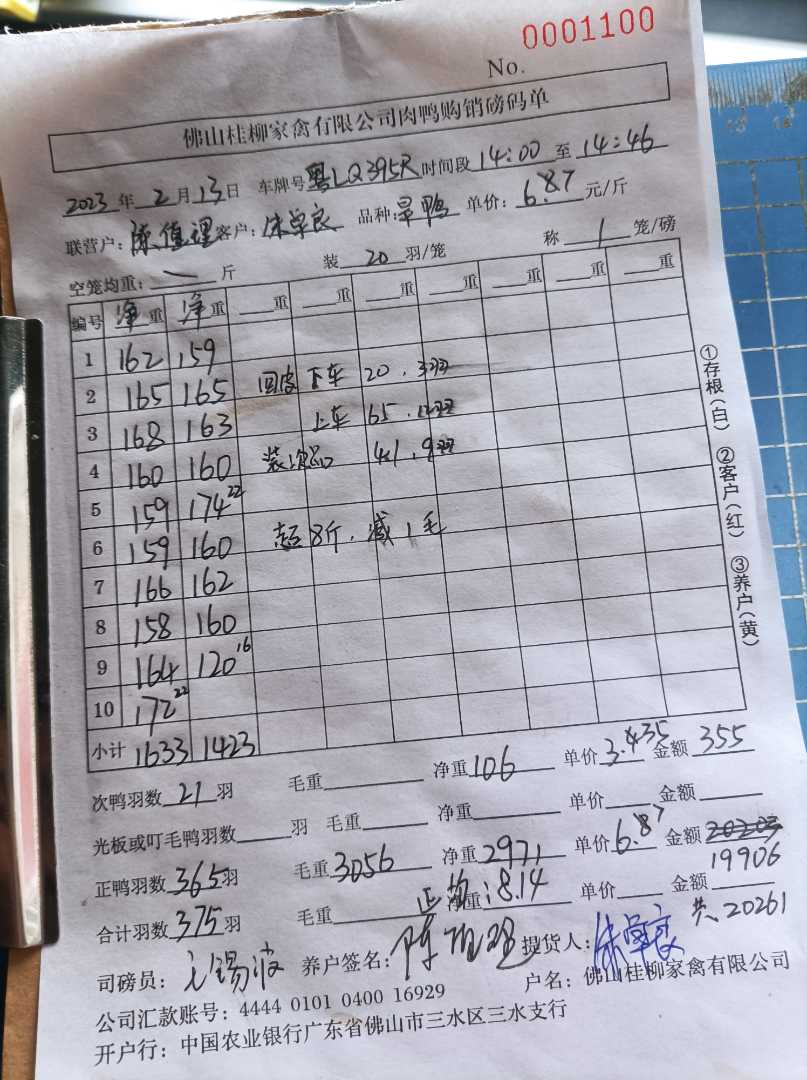 0001100
No.
佛山桂柳家禽有限公司肉鸭购销磅码单
2023年2月13日 车牌号粤LQ395R时间段14:00至14:46
联营户:陈值理 客户:朱学良 品种:旱鸭 单价:6.87元/斤
空笼均重:一斤 装20羽/笼 称1笼/磅
编号 净重 净重 重 重 重 重 重 重 重
1 162 159
2 165 165 回皮 下车 20.3羽
3 168 163 上车 65.12羽
4 160 160 装次品 41.9羽
5 159 174 22
6 159 160 超8斤.减1毛
7 166 162
8 158 160
9 164 120 16
10 172 22
小计 1633 1423
①存根(白) ②客户(红) ③养户(黄)
次鸭羽数21羽 毛重 净重106 单价3.435 金额355
光板或叮毛鸭羽数 羽 毛重 净重 单价 金额
正鸭羽数365羽 毛重3056 净重2971 单价6.87 金额
19906
合计羽数375羽 毛重 净重:8.14 单价 金额
共20261
司磅员: 养户签名:陈值理 提货人:朱学良
公司汇款账号:4444 0101 0400 16929 户名:佛山桂柳家禽有限公司
开户行:中国农业银行广东省佛山市三水区三水支行